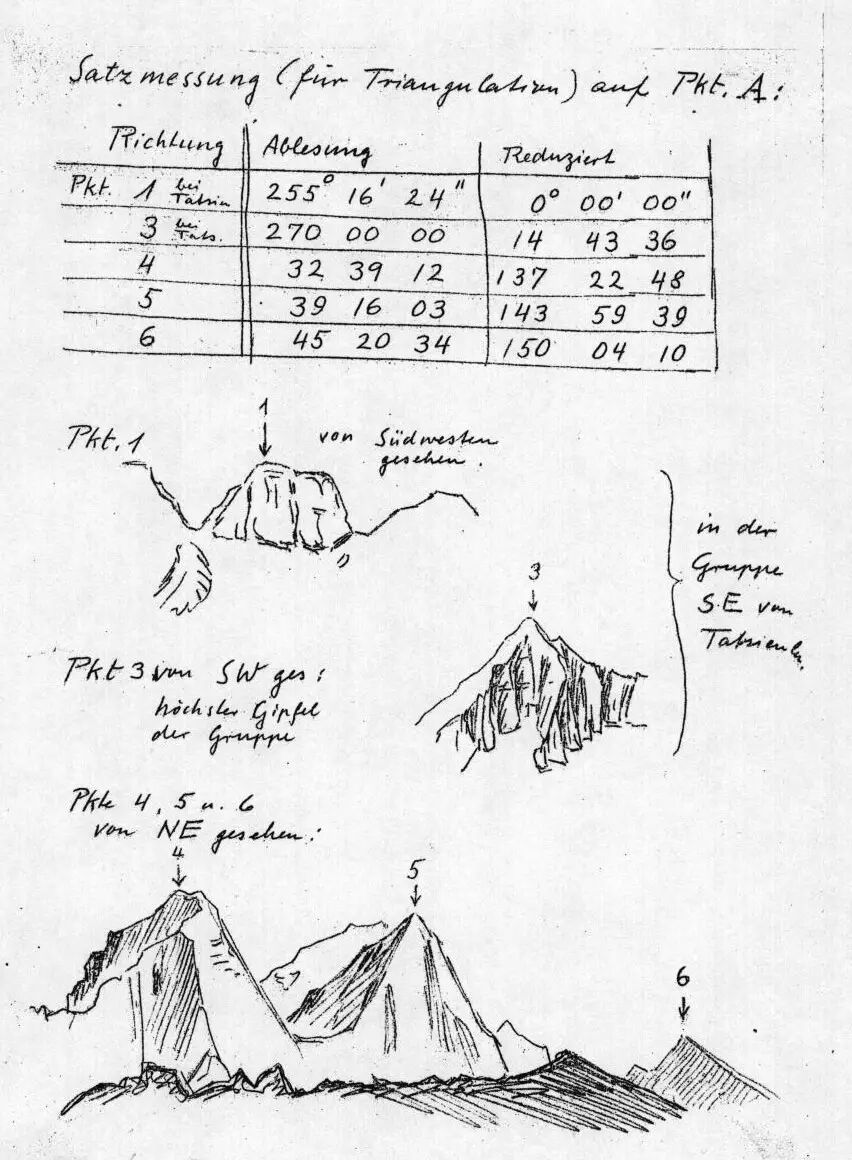 Satzmessung (für Triangulation) auf Pkt. A:
Richtung Ablesung Reduziert
Pkt. 1 bei Tatsien 255° 16' 24" 0° 00' 00"
3 bei Tats. 270 00 00 14 43 36
4 32 39 12 137 22 48
5 39 16 03 143 59 39
6 45 20 34 150 04 10
1
Pkt. 1 von Südwesten
gesehen.
in der
Gruppe
S.E von
3
Pkt 3 von SW ges:
höchster Gipfel
der Gruppe
Pkte 4, 5 u. 6
von NE gesehen:
4
5
6